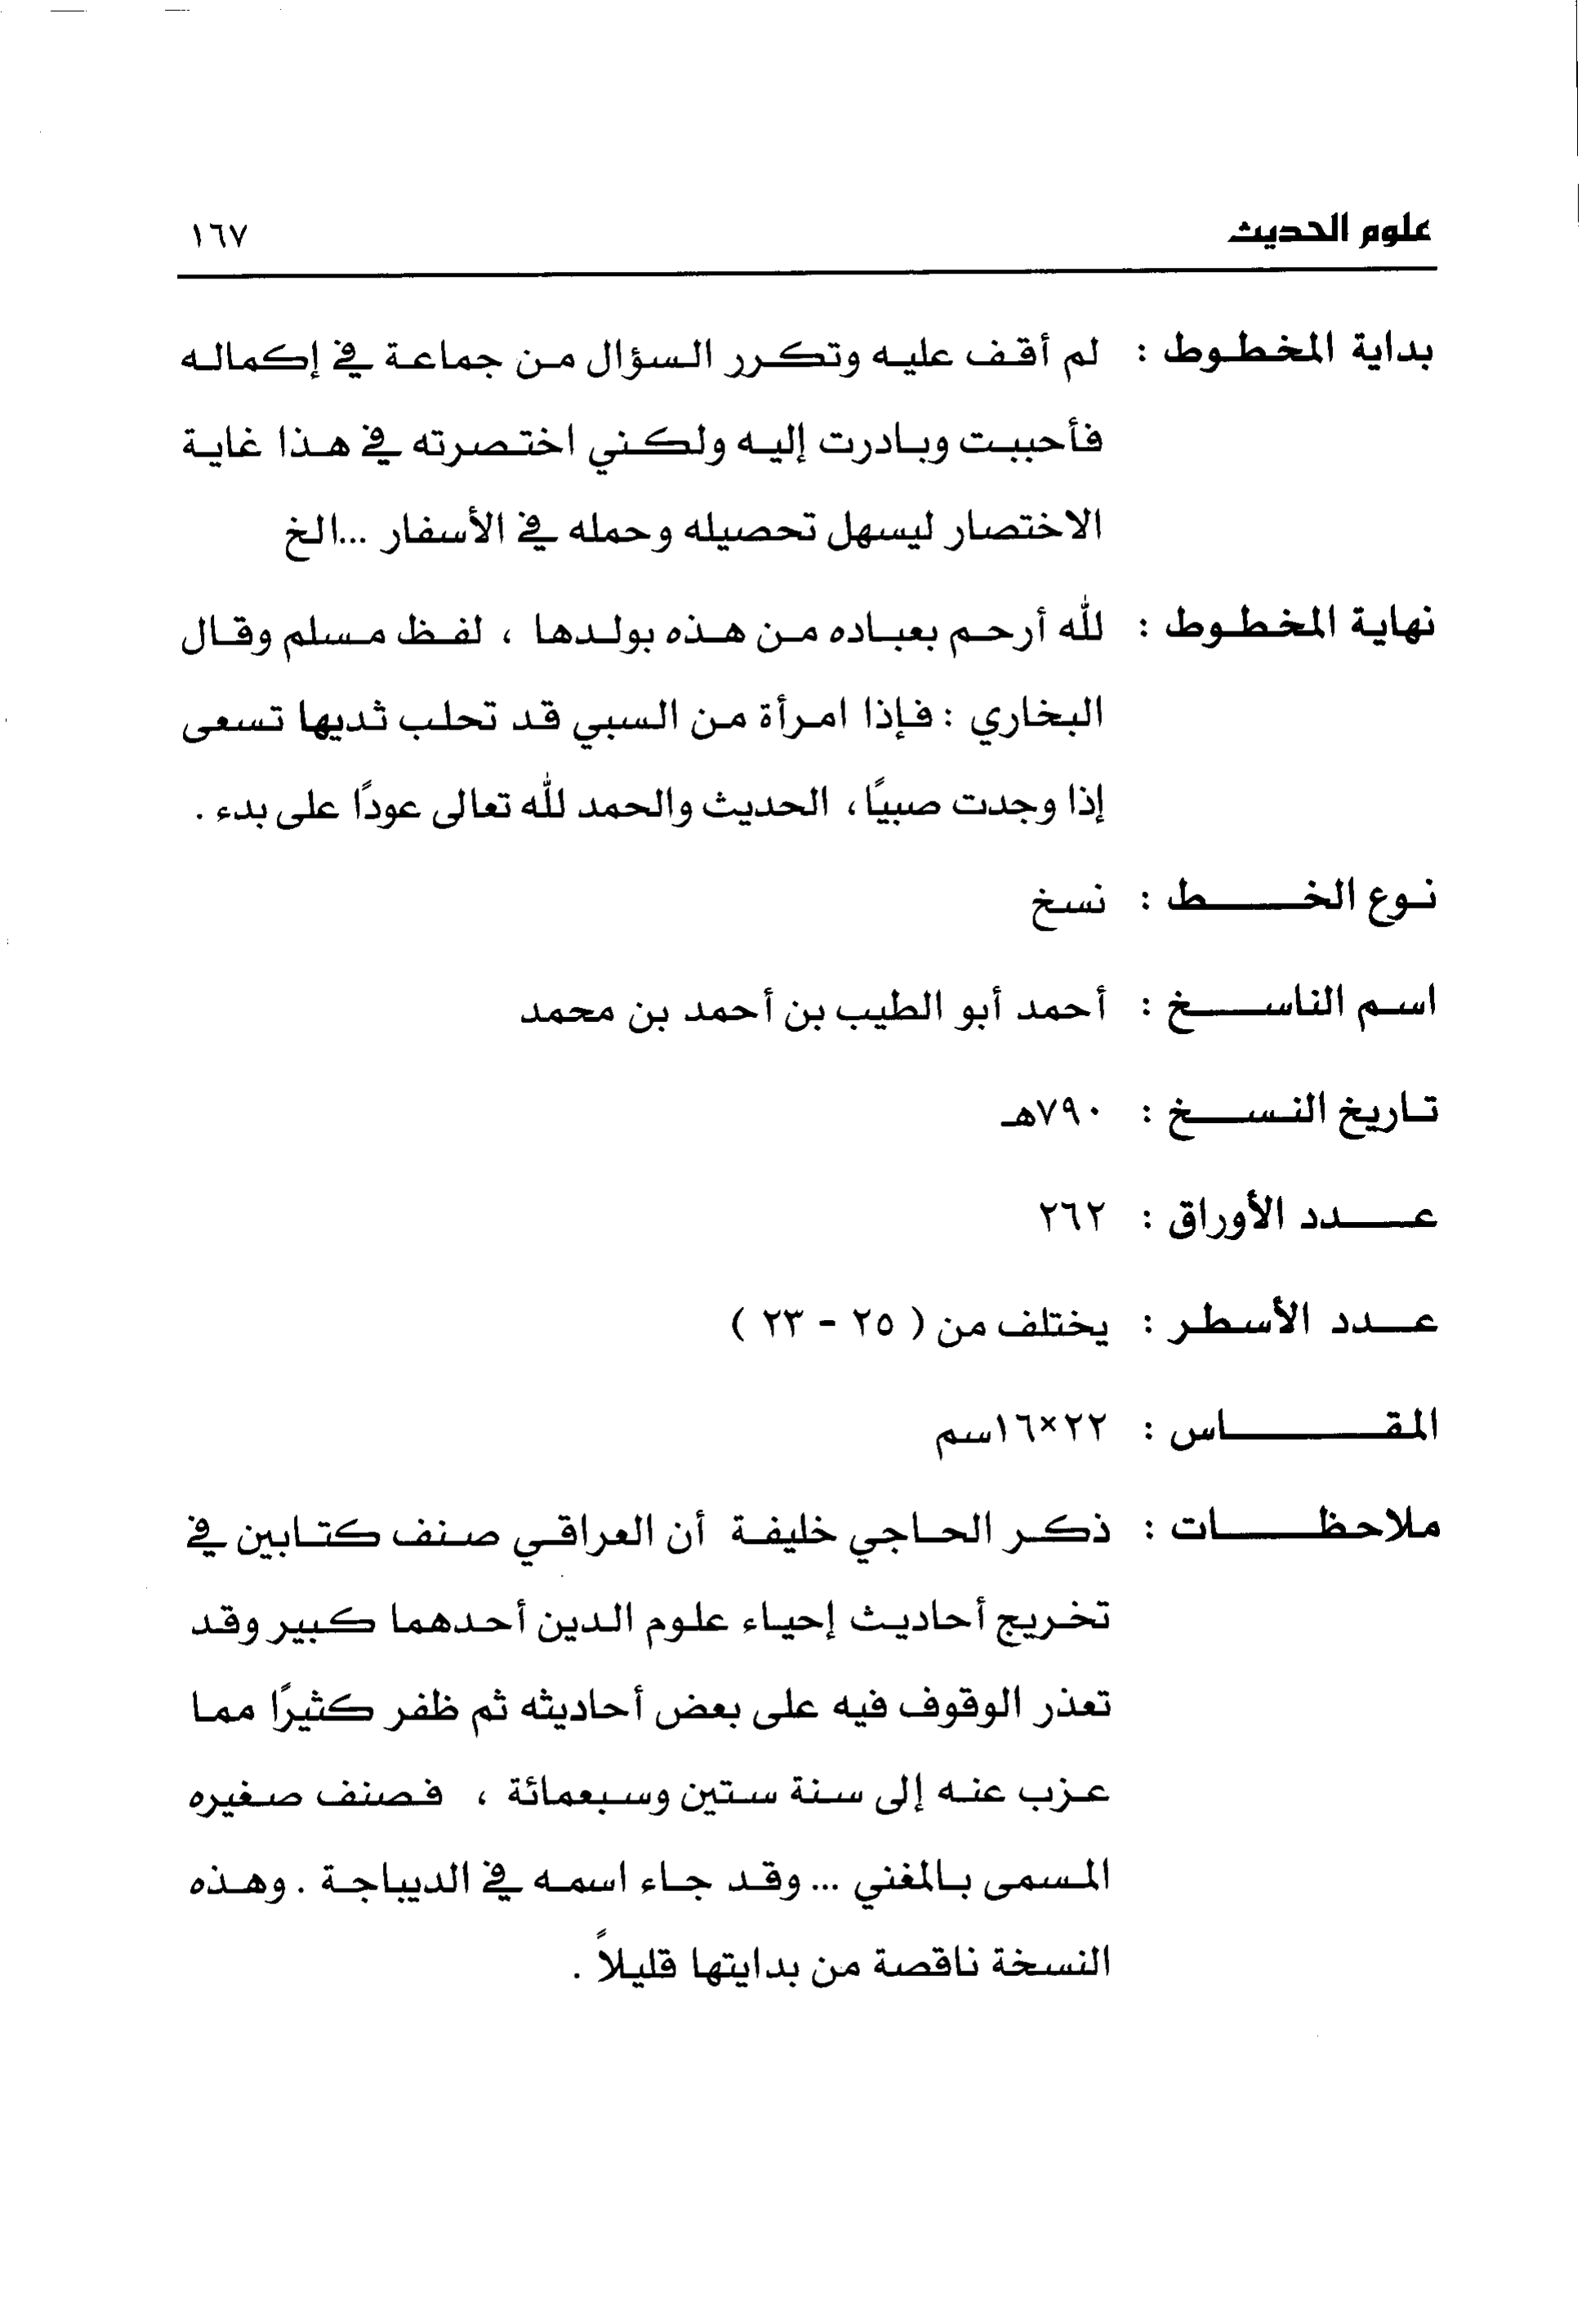 علوم الحديث ١٦٧
بداية المخطوط : لم أقف عليه وتكرر السؤال من جماعة في إكماله
فأحببت وبادرت إليه ولكني اختصرته في هذا غاية
الاختصار ليسهل تحصيله وحمله في الأسفار ...الخ
نهاية المخطوط : لله أرحم بعباده من هذه بولدها ، لفظ مسلم وقال
البخاري : فإذا امرأة من السبي قد تحلب ثديها تسعى
إذا وجدت صبيًا ، الحديث والحمد لله تعالى عودًا على بدء .
نوع الخط : نسخ
اسم الناسخ : أحمد أبو الطيب بن أحمد بن محمد
تاريخ النسخ : ٧٩٠هـ
عدد الأوراق : ٢٦٢
عدد الأسطر : يختلف من ( ٢٥ - ٢٣ )
المقاس : ٢٢×١٦سم
ملاحظات : ذكر الحاجي خليفة أن العراقي صنف كتابين في
تخريج أحاديث إحياء علوم الدين أحدهما كبير وقد
تعذر الوقوف فيه على بعض أحاديثه ثم ظفر كثيرًا مما
عزب عنه إلى سنة ستين وسبعمائة ، فصنف صغيره
المسمى بالمغني ... وقد جاء اسمه في الديباجة . وهذه
النسخة ناقصة من بدايتها قليلاً .